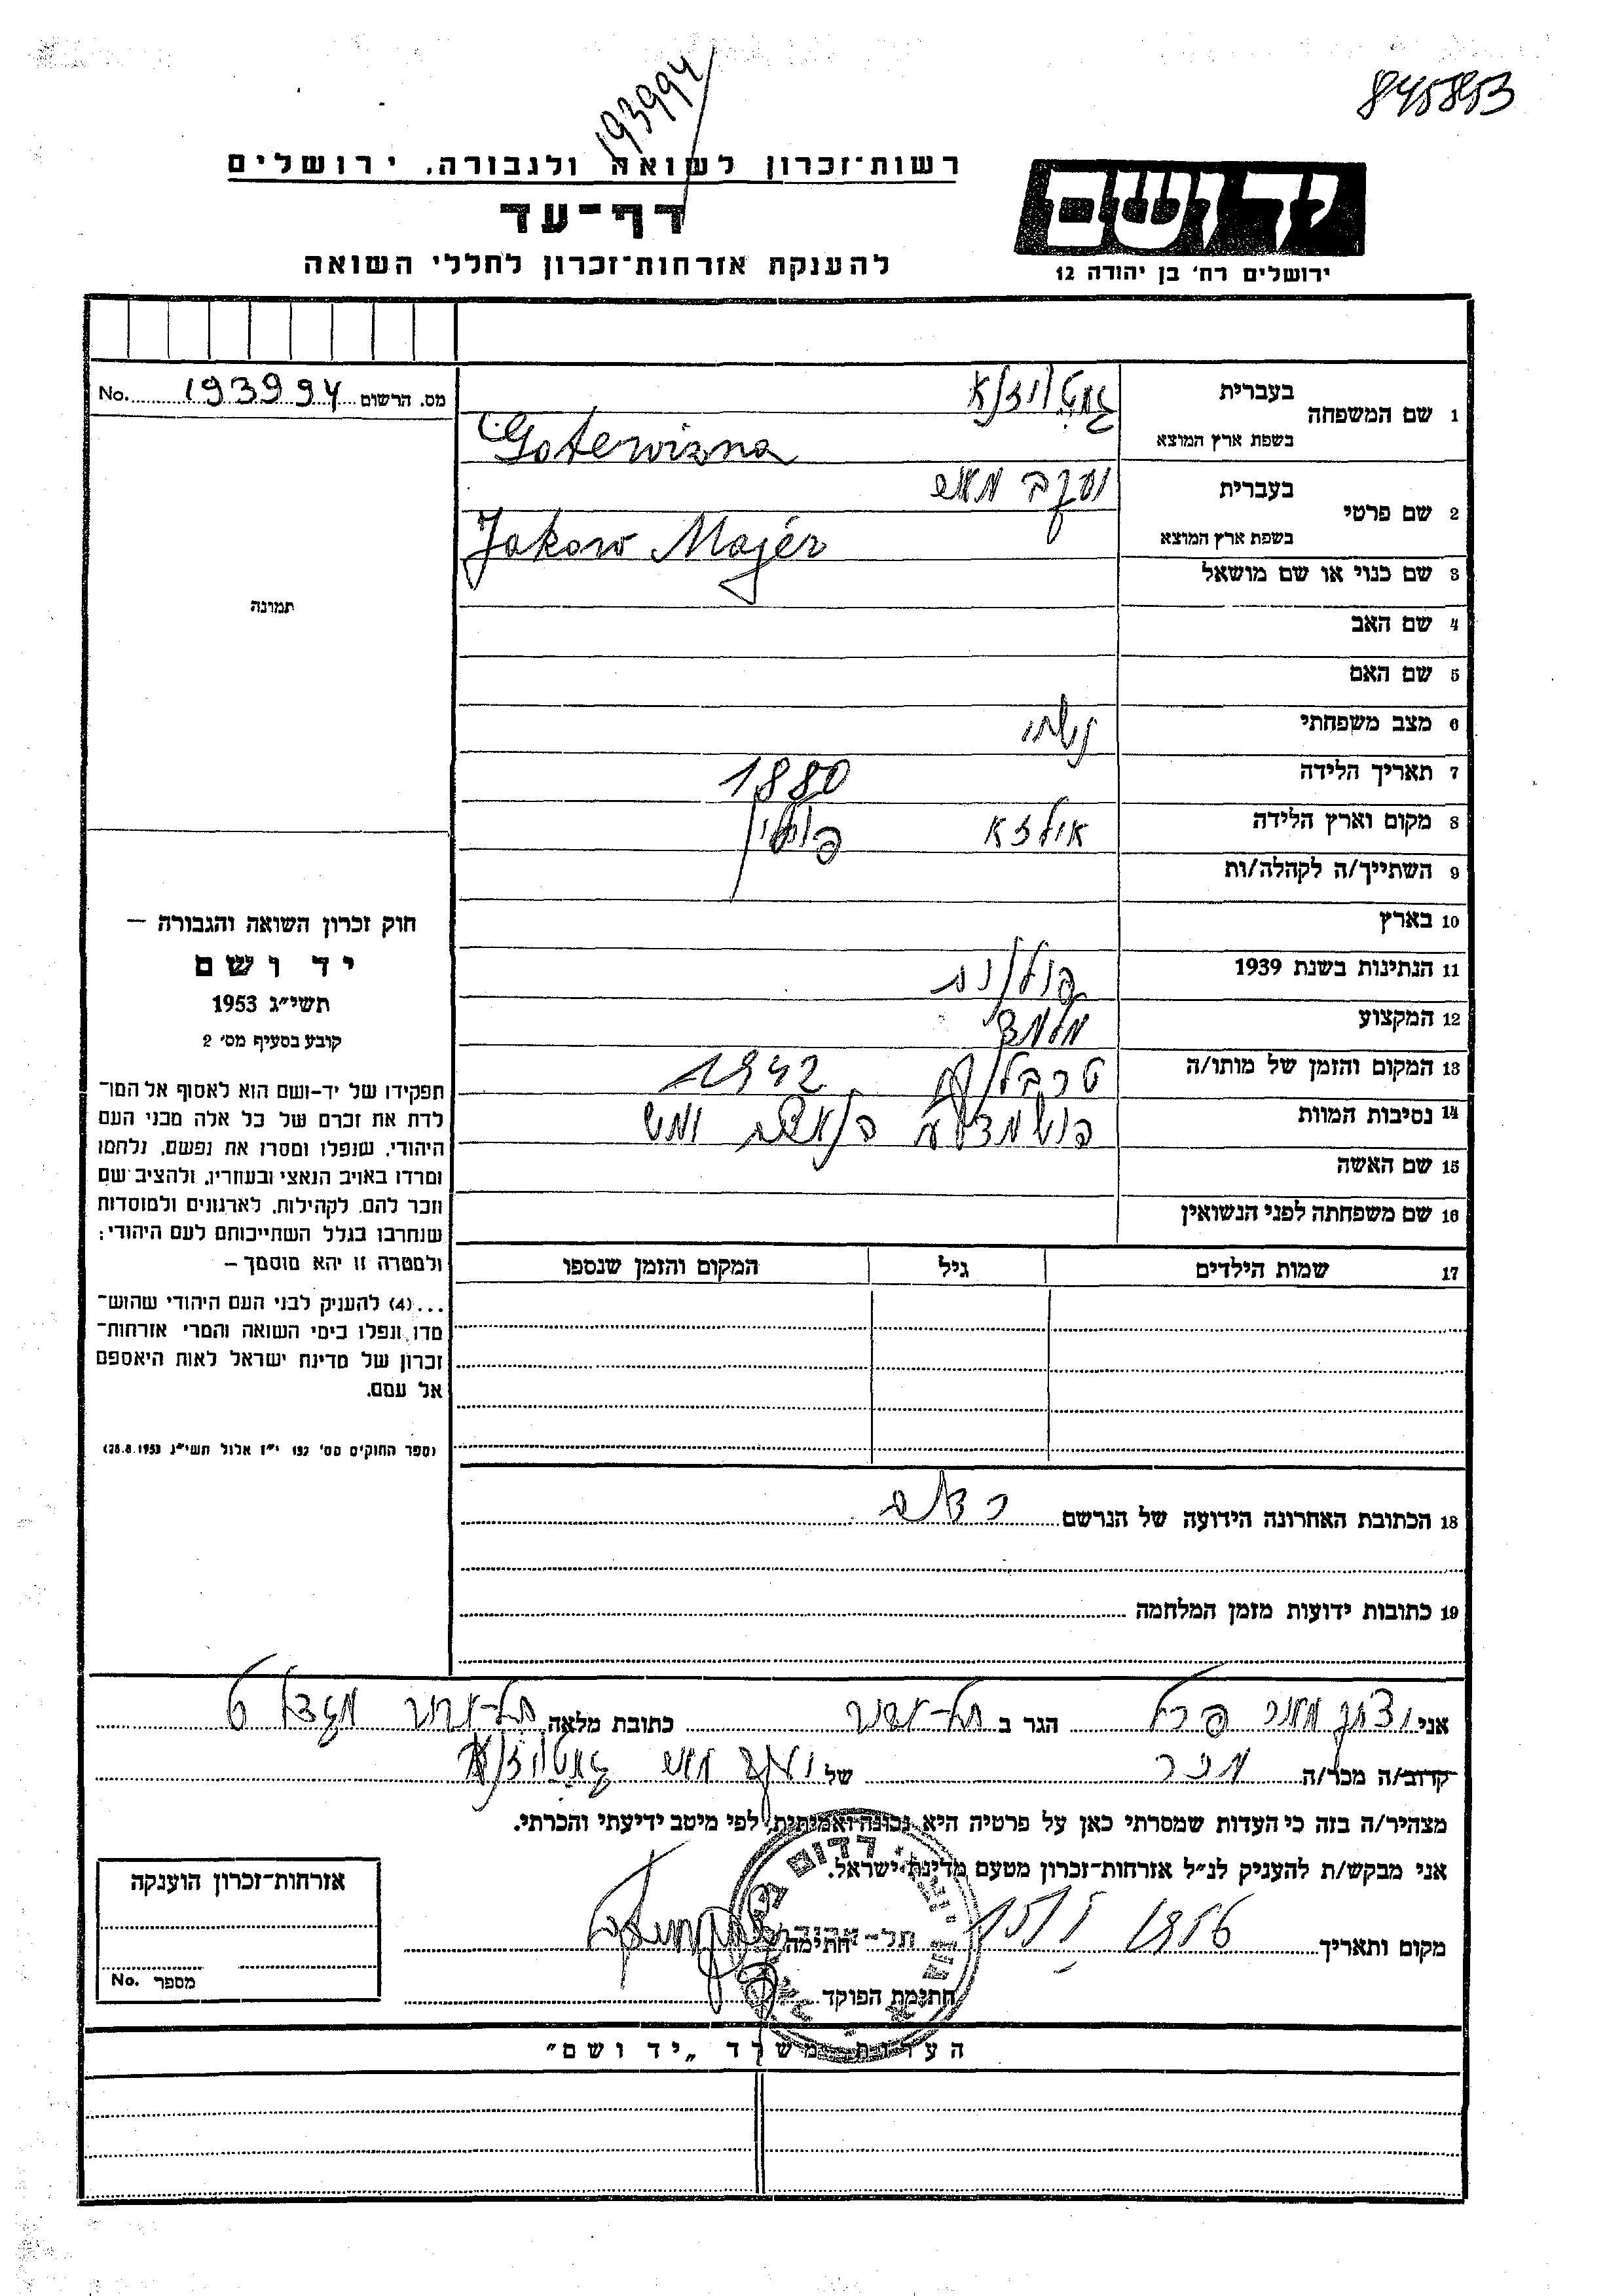 845853
193994
רשות־זכרון לשואה ולגבורה, ירושלים
יד ושם
דף־עד
להענקת אזרחות־זכרון לחללי השואה
ירושלים רח' בן יהודה 12
מס. הרשום 193994 No.
1 שם המשפחה
בעברית
בשפת ארץ המוצא Gotewizna
2 שם פרטי
בעברית יעקב מאיר
בשפת ארץ המוצא Jakow Majér
3 שם כנוי או שם מושאל
4 שם האב
5 שם האם
6 מצב משפחתי נשוי
7 תאריך הלידה 1880
8 מקום וארץ הלידה פולין
9 השתייך/ה לקהלה/ות
10 בארץ
11 הנתינות בשנת 1939 פולנית
12 המקצוע מלמד
13 המקום והזמן של מותו/ה 1942
14 נסיבות המוות
15 שם האשה
16 שם משפחתה לפני הנשואין
17 שמות הילדים גיל המקום והזמן שנספו
18 הכתובת האחרונה הידועה של הנרשם
19 כתובות ידועות מזמן המלחמה
תמונה
חוק זכרון השואה והגבורה –
יד ושם
תשי"ג 1953
קובע בסעיף מס' 2
תפקידו של יד-ושם הוא לאסוף אל המו־
לדת את זכרם של כל אלה מבני העם
היהודי, שנפלו ומסרו את נפשם, נלחמו
ומרדו באויב הנאצי ובעוזריו, ולהציב שם
וזכר להם, לקהילות, לארגונים ולמוסדות
שנחרבו בגלל השתייכותם לעם היהודי;
ולמטרה זו יהא מוסמך –
...(4) להעניק לבני העם היהודי שהוש־
מדו ונפלו בימי השואה והמרי אזרחות־
זכרון של מדינת ישראל לאות היאספם
אל עמם.
(ספר החוקים מס' 132 י"ז אלול תשי"ג 28.8.1953)
אני פרל הגר ב תל-אביב כתובת מלאה תל-אביב
קרוב/ה מכר/ה מכר של יעקב מאיר
מצהיר/ה בזה כי העדות שמסרתי כאן על פרטיה היא נכונה ואמיתית, לפי מיטב ידיעתי והכרתי.
אני מבקש/ת להעניק לנ"ל אזרחות־זכרון מטעם מדינת ישראל.
מקום ותאריך 1956 תל-אביב חתימה
חתימת הפוקד
אזרחות־זכרון הוענקה
מספר No.
הערות משרד „יד ושם"